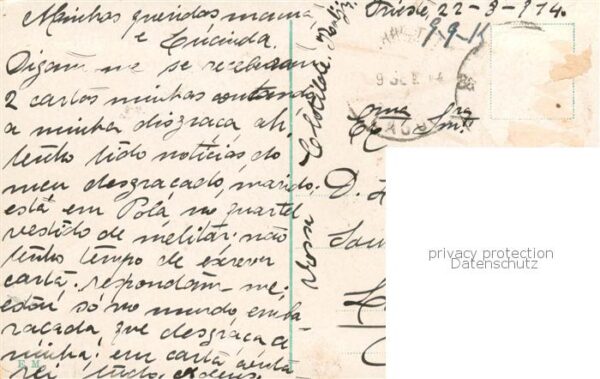 Trieste, 22-3-914.
Minhas queridas mamã
e Lucinda.
Digam-me se receberam
2 cartas minhas contando
a minha disgraça ahi
tenho tido noticias do
meu desgraçado, marido.
está em Pola no quartel
vestido de militar. não
tenho tempo de escrever
carta. respondam-me.
estou só no mundo, emba
raçada que desgraça a
minha! em carta contá
rei tudo. adeus
Vossa Clotilde
99K
Exma Sra
D.
privacy protection
Datenschutz
E. M.